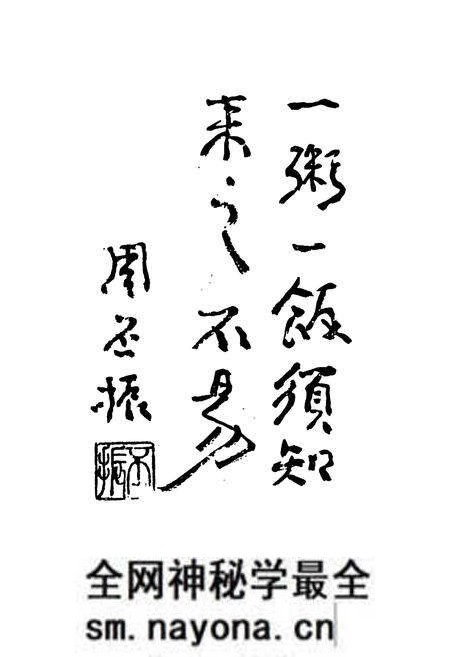 一粥一飯須知
来之不易
周丕振
丕振
全网神秘学最全
sm.nayona.cn